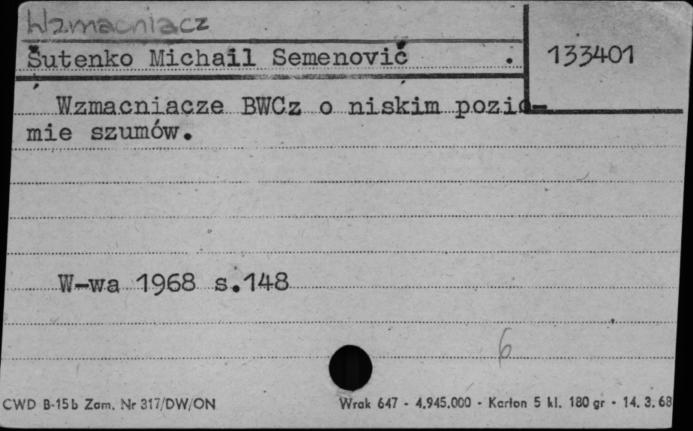 Wzmacniacz
Šutenko Michail Semenovič . 133401
Wzmacniacze BWCz o niskim pozio-
mie szumów.
W-wa 1968 s.148
6
CWD B-15b Zam. Nr 317/DW/ON Wrak 647 - 4.945.000 - Karton 5 kl. 180 gr - 14. 3. 68